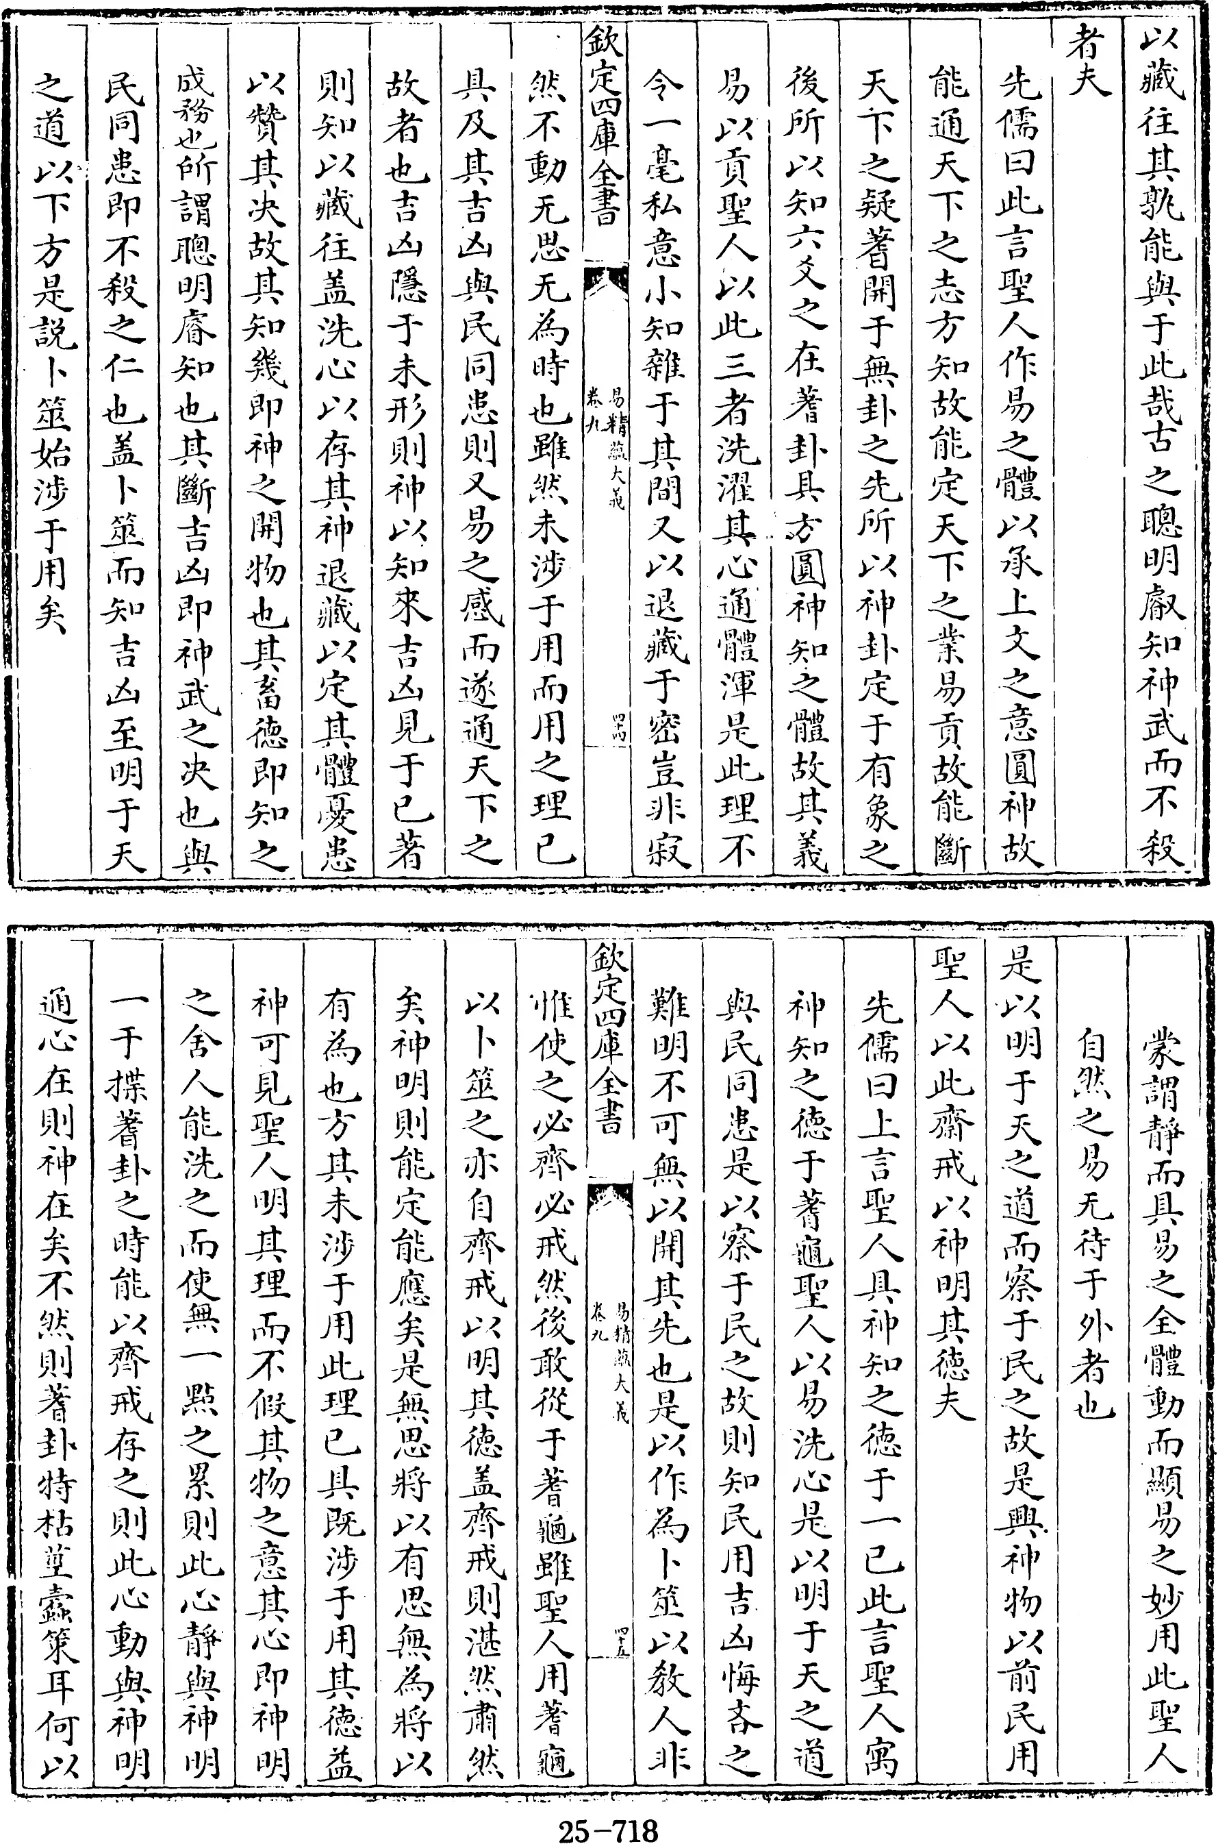 以藏往其孰能與于此哉古之聰明叡知神武而不殺
者夫
先儒曰此言聖人作易之體以承上文之意圓神故
能通天下之志方知故能定天下之業易貢故能斷
天下之疑蓍開于無卦之先所以神卦定于有象之
後所以知六爻之在蓍卦具方圓神知之體故其義
易以貢聖人以此三者洗濯其心通體渾是此理不
令一毫私意小知雜于其間又以退藏于密豈非寂
欽定四庫全書
易精蘊大義
卷九
四十四
然不動无思无為時也雖然未涉于用而用之理已
具及其吉凶與民同患則又易之感而遂通天下之
故者也吉凶隱于未形則神以知來吉凶見于已著
則知以藏往盖洗心以存其神退藏以定其體憂患
以贊其決故其知幾即神之開物也其畜德即知之
成務也所謂聰明睿知也其斷吉凶即神武之決也與
民同患即不殺之仁也盖卜筮而知吉凶至明于天
之道以下方是説卜筮始涉于用矣
蒙謂靜而具易之全體動而顯易之妙用此聖人
自然之易无待于外者也
是以明于天之道而察于民之故是興神物以前民用
聖人以此齋戒以神明其德夫
先儒曰上言聖人具神知之德于一已此言聖人寓
神知之德于蓍龜聖人以易洗心是以明于天之道
與民同患是以察于民之故則知民用吉凶悔吝之
難明不可無以開其先也是以作為卜筮以教人非
欽定四庫全書
易精蘊大義
卷九
四十五
惟使之必齊必戒然後敢從于蓍龜雖聖人用蓍龜
以卜筮之亦自齊戒以明其德盖齊戒則湛然肅然
矣神明則能定能應矣是無思將以有思無為將以
有為也方其未涉于用此理已具既涉于用其德益
神可見聖人明其理而不假其物之意其心即神明
之舍人能洗之而使無一點之累則此心靜與神明
一于揲蓍卦之時能以齊戒存之則此心動與神明
通心在則神在矣不然則蓍卦特枯莖蠹策耳何以
25-718